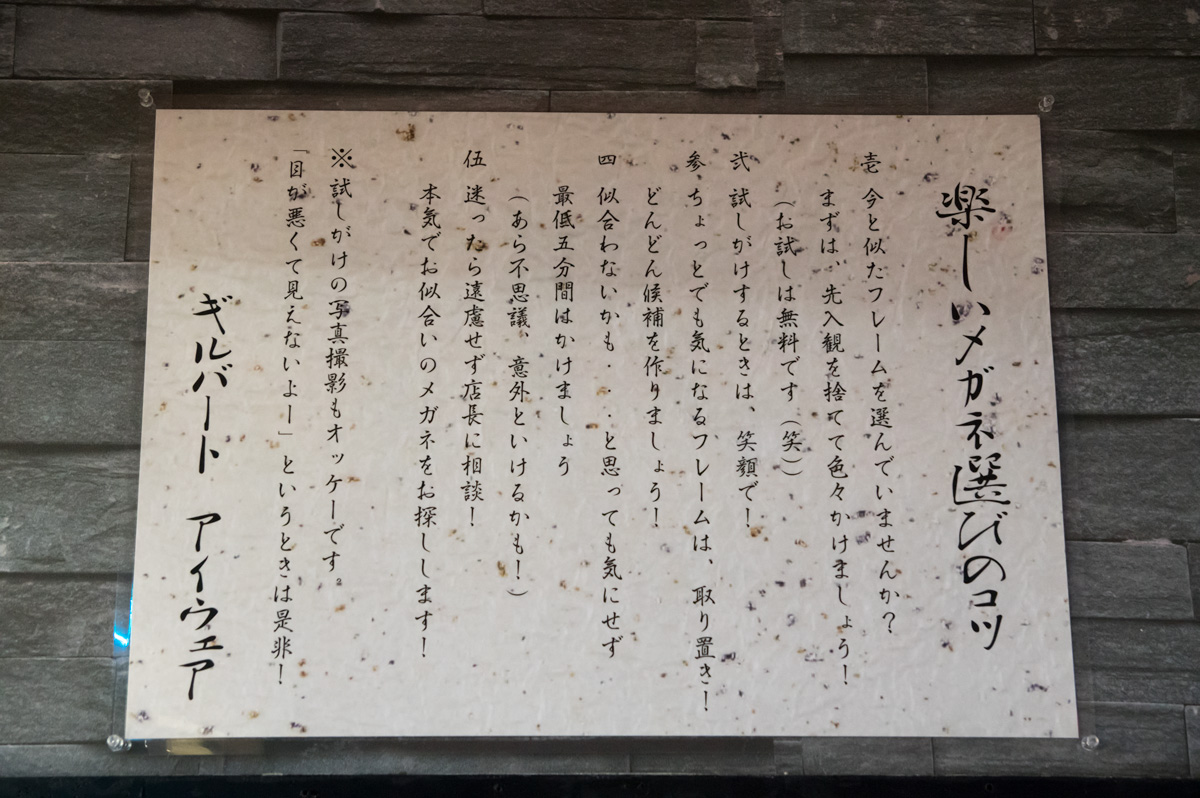 楽しいメガネ選びのコツ
壱 今と似たフレームを選んでいませんか？
まずは、先入観を捨てて色々かけましょう！
（お試しは無料です（笑））
弐 試しがけするときは、笑顔で！
参 ちょっとでも気になるフレームは、取り置き！
どんどん候補を作りましょう！
四 似合わないかも・・・と思っても気にせず
最低五分間はかけましょう
（あら不思議、意外といけるかも！）
伍 迷ったら遠慮せず店長に相談！
本気でお似合いのメガネをお探しします！
※ 試しがけの写真撮影もオッケーです。
「目が悪くて見えないよー」というときは是非！
ギルバート アイウェア